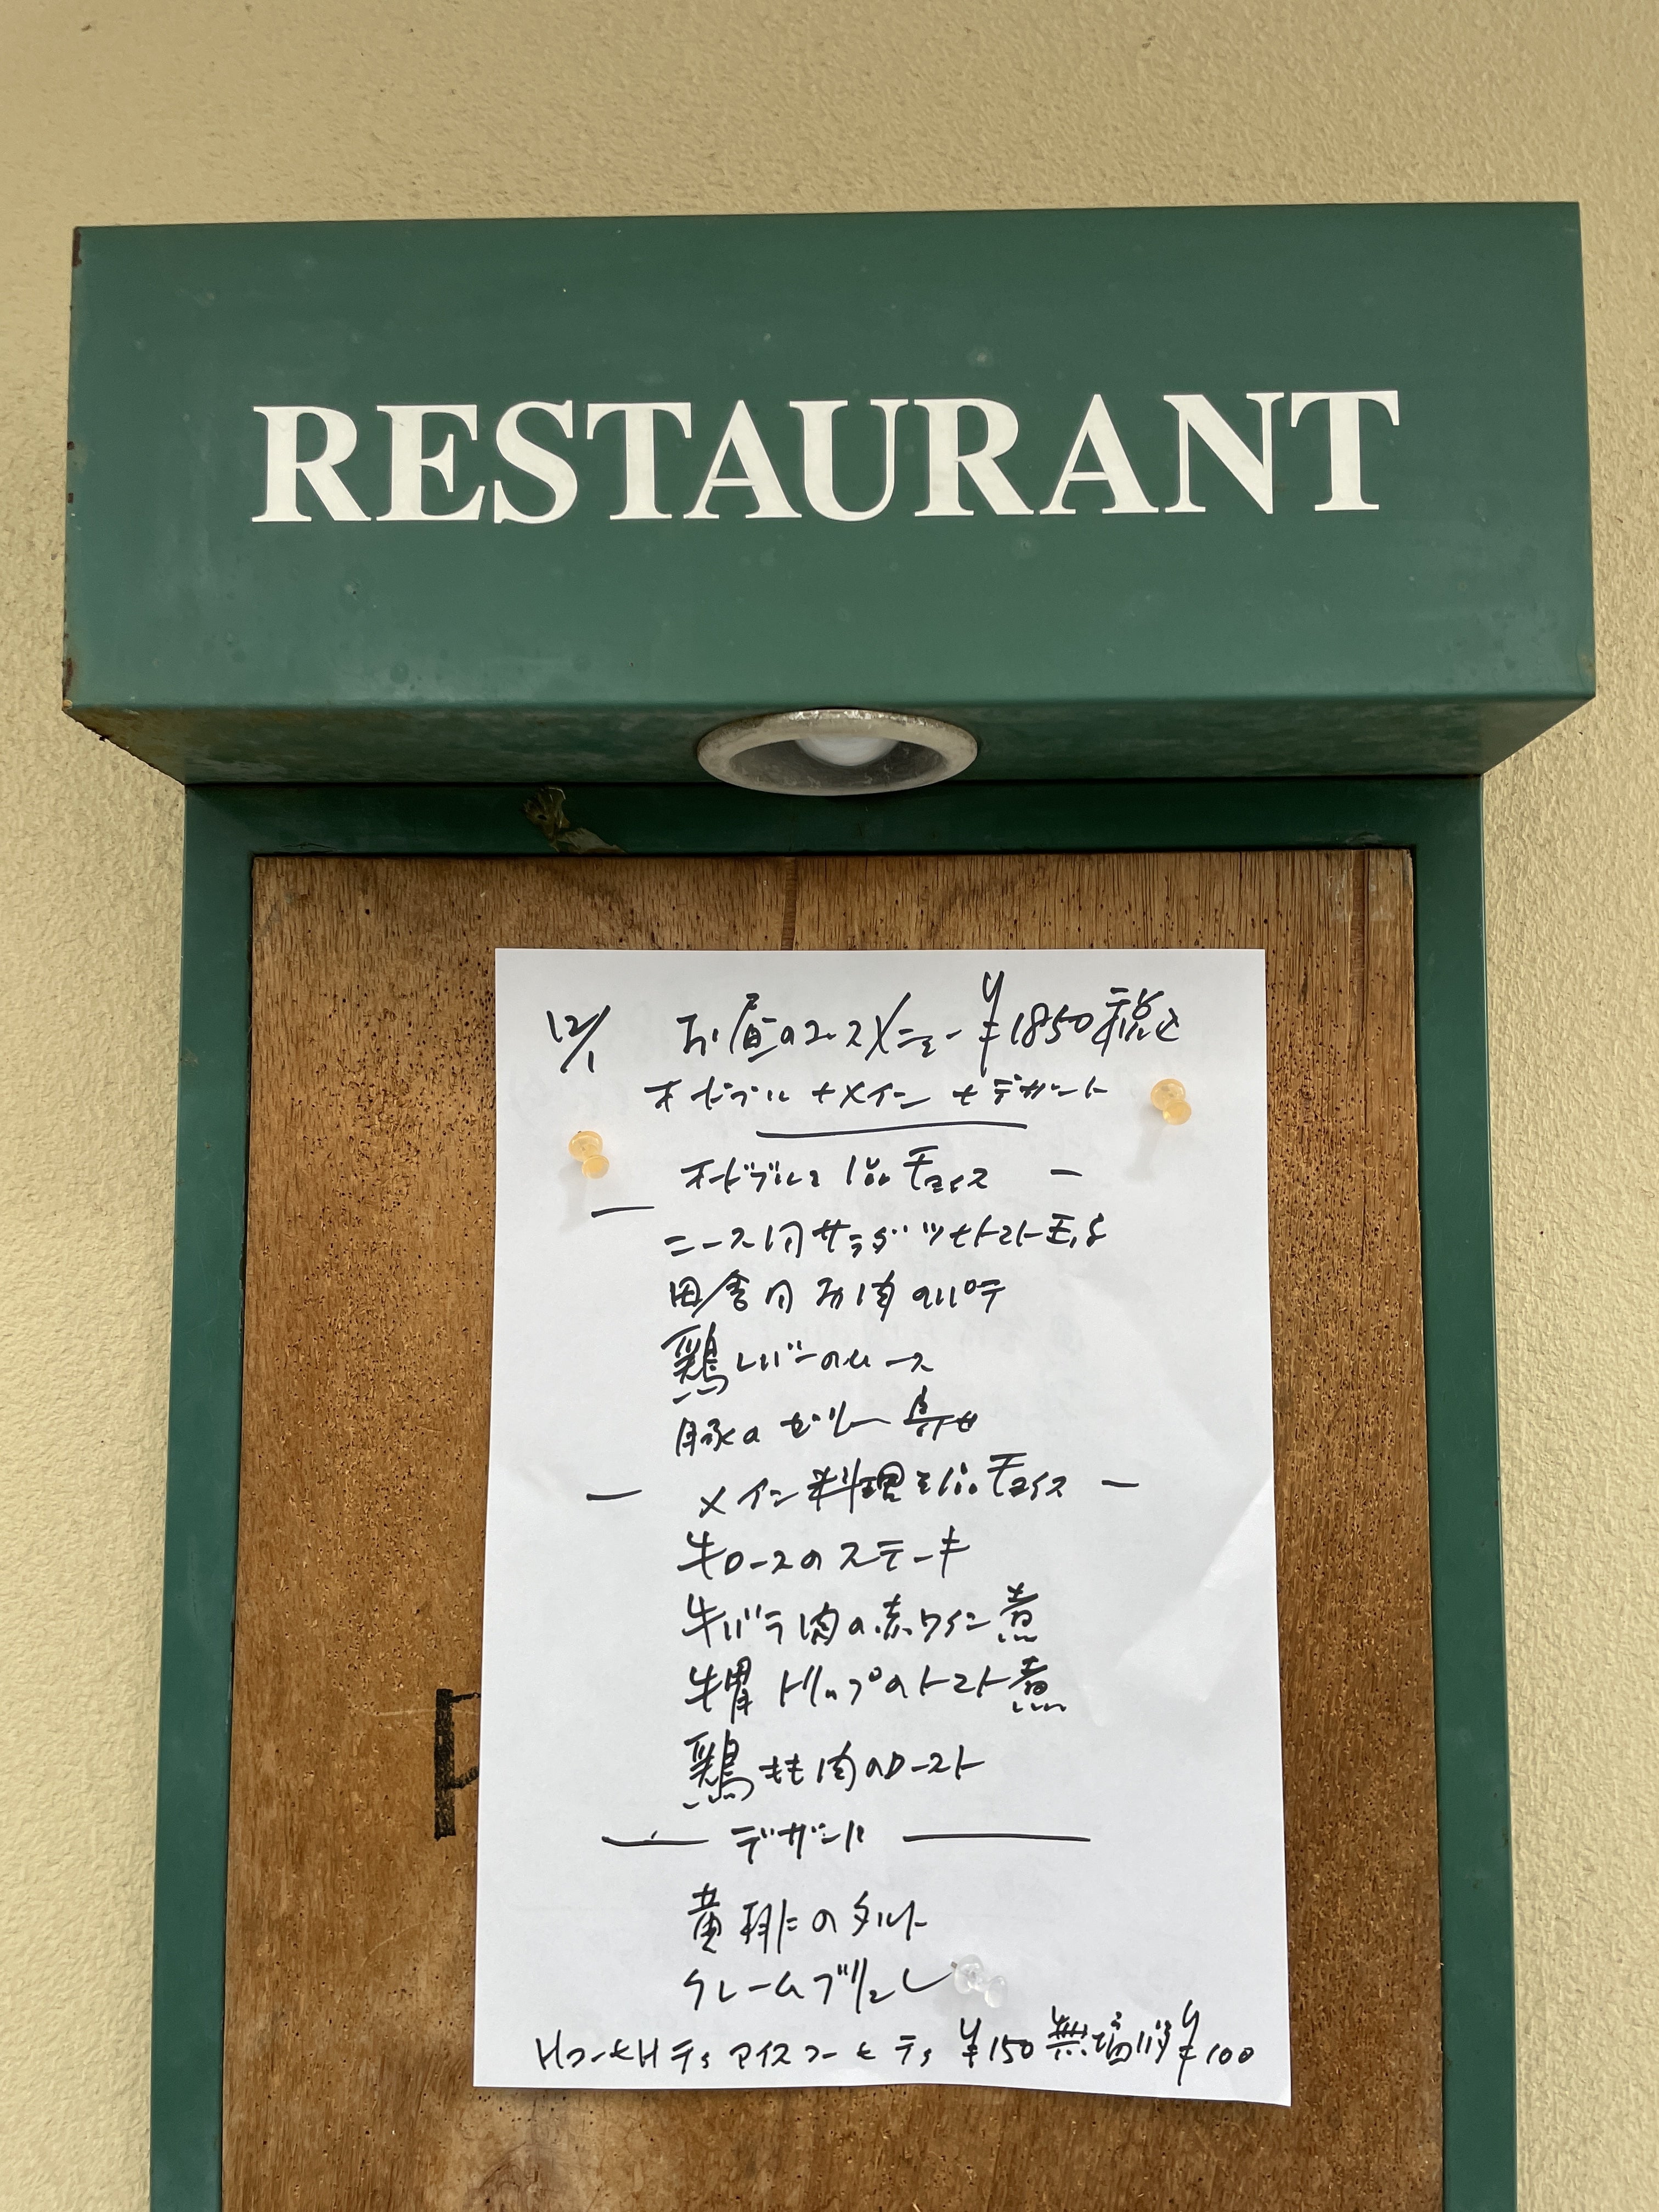 RESTAURANT
12/1 お昼のコースメニュー ¥1850税込
オードブル+メイン+デザート
オードブル1品チョイス ー
ニース風サラダ ツナトマト玉子
田舎風お肉のパテ
鶏レバーのムース
豚のゼリー寄せ
ー メイン料理を1品チョイス ー
牛ロースのステーキ
牛バラ肉の赤ワイン煮
牛胃トリップのトマト煮
鶏もも肉のロースト
デザート
黄桃のタルト
クレームブリュレ
Hコーヒ Hティ アイスコーヒ ティ ¥150 無塩バター ¥100